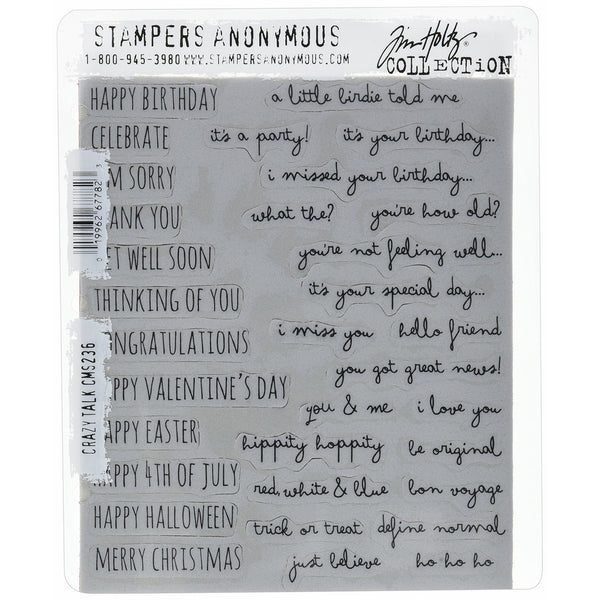 STAMPERS ANONYMOUS
1-800-945-3980 WWW.STAMPERSANONYMOUS.COM
Tim Holtz®
COLLECTiON
HAPPY BIRTHDAY a little birdie told me
CELEBRATE it's a party! it's your birthday...
'M SORRY i missed your birthday...
ANK YOU what the? you're how old?
ET WELL SOON you're not feeling well...
THINKING OF YOU it's your special day...
NGRATULATIONS i miss you hello friend
you got great news!
PPY VALENTINE'S DAY you & me i love you
APPY EASTER hippity hoppity be original
APPY 4TH OF JULY red, white & blue bon voyage
HAPPY HALLOWEEN trick or treat define normal
MERRY CHRISTMAS just believe ho ho ho
0 19962 67782 3
CRAZY TALK CMS236